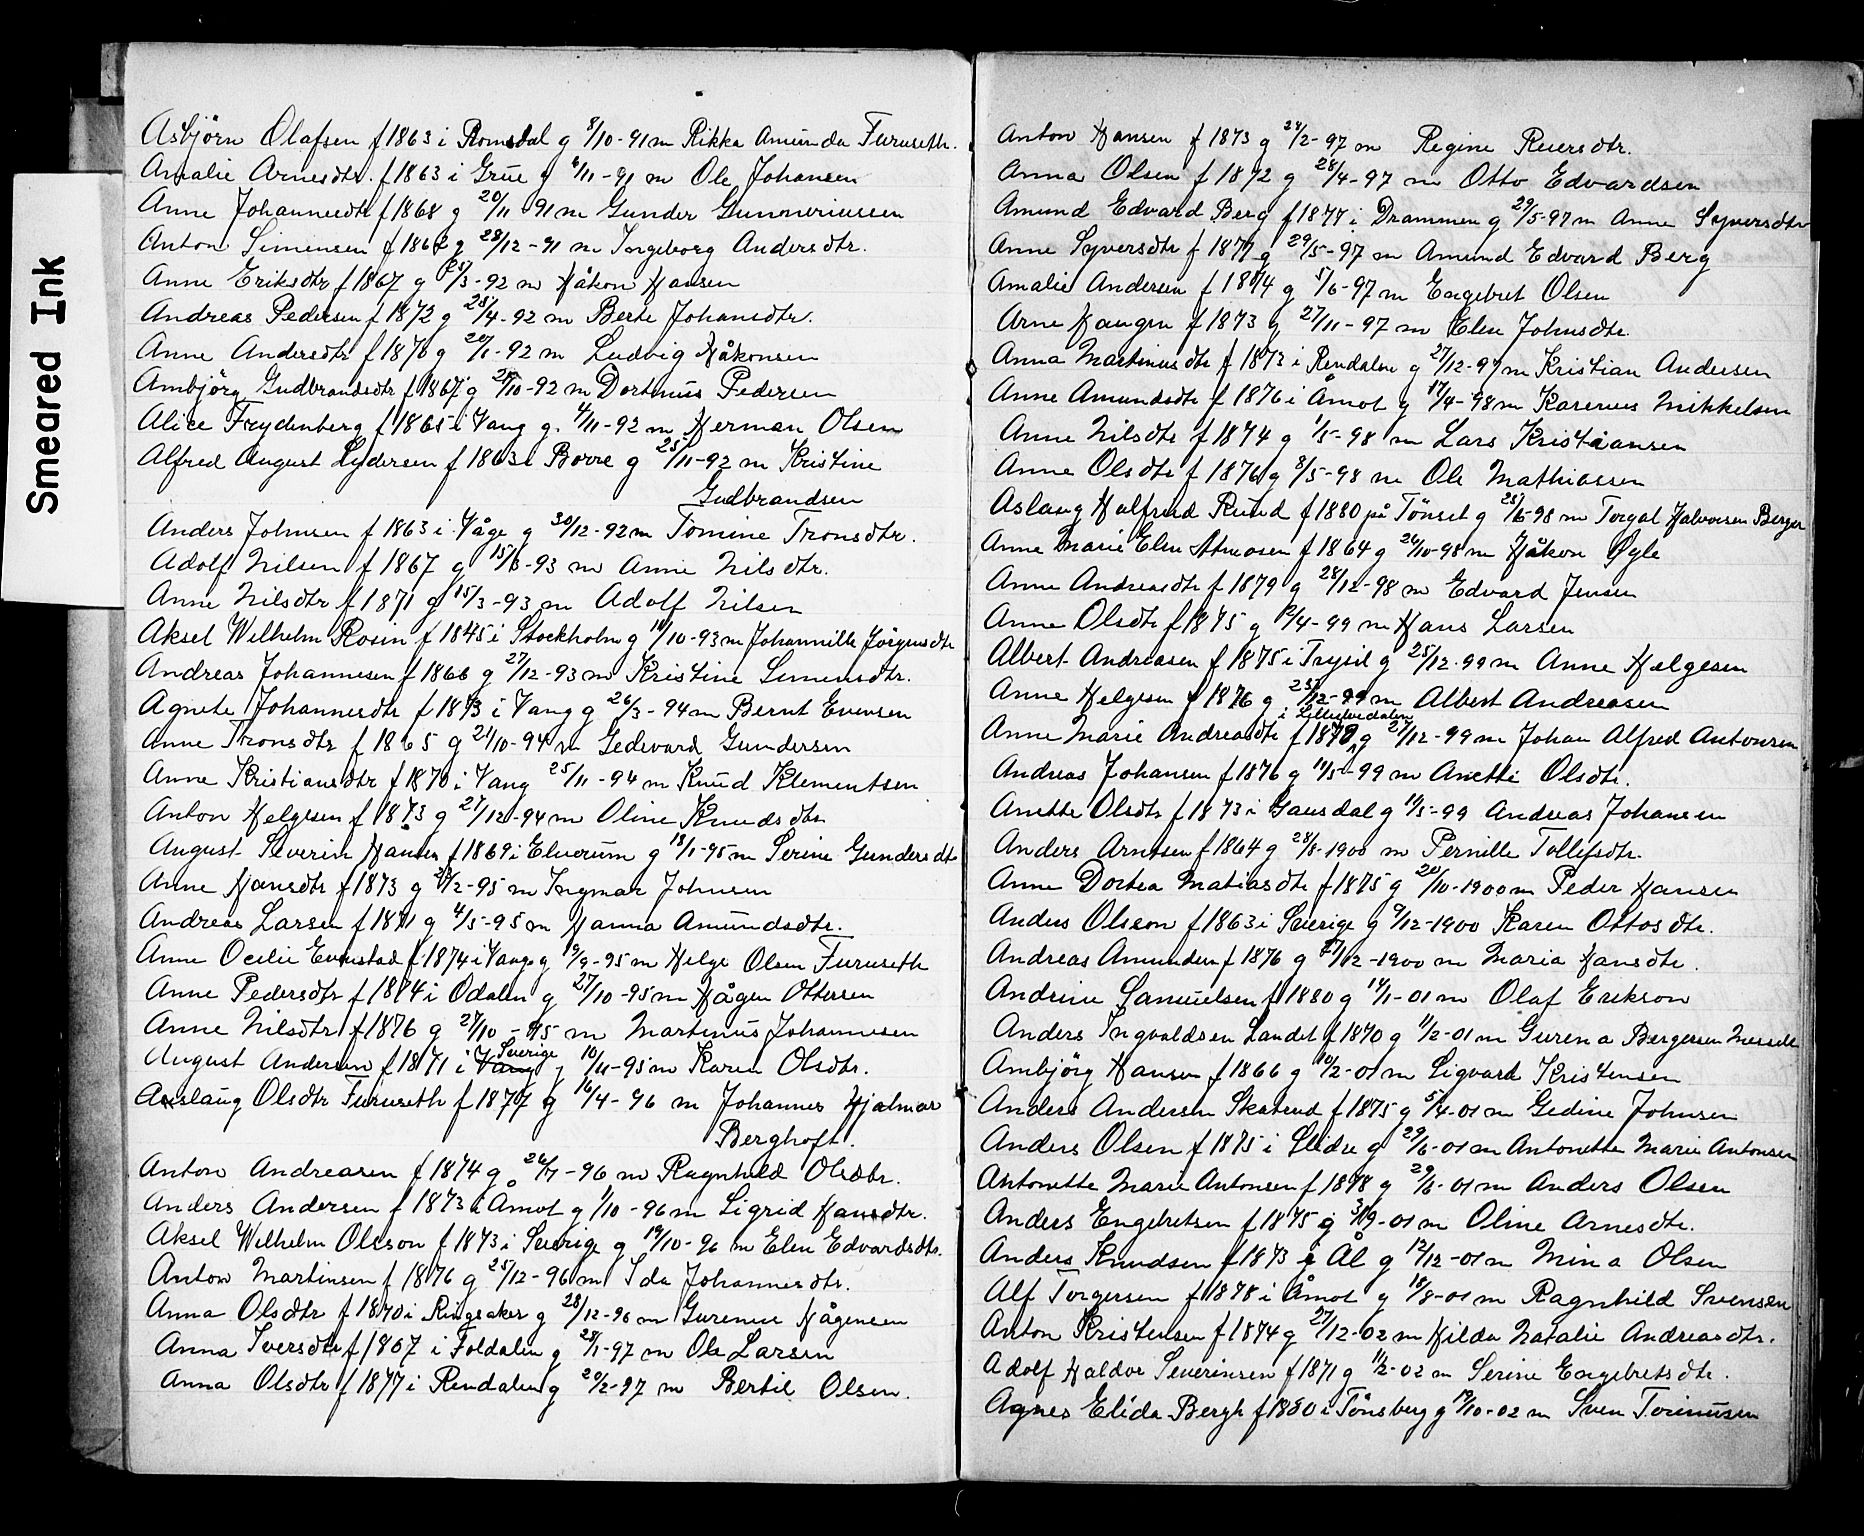 Smeared Ink
Asbjörn Olafsen f 1863 i Romsdal g 8/10-91 m Rikka Amunda Furuseth.
Amalie Arnesdtr. f 1863 i Grue g 6/11-91 m Ole Johansen
Anne Johannesdtr f 1868 g 20/11-91 m Gunder Gunneriussen
Anton Simensen f 1862 g 28/12-91 m Ingeborg Andersdtr.
Anne Eriksdtr f 1867 g /3-92 m Håkon Hansen
Andreas Pedersen f 1872 g 25/4-92 m Berte Johansdtr.
Anne Andersdtr f 1876 g -92 m Ludvig Håkonsen
Ambjörg Gudbrandsdtr f 1867 g /10-92 m Dortinus Pedersen
Alice Frydenberg f 1865 i Vang g. 4/11-92 m Herman Olsen
Alfred August Lydersen f 1863 i Borre g 25/11-92 m Kristine
Gudbrandsen
Anders Johnsen f 1863 i Våge g 30/12-92 m Tomine Tronsdtr.
Adolf Nilsen f 1867 g 15/3-93 m Anne Nilsdtr.
Anne Nilsdtr f 1871 g 15/3-93 m Adolf Nilsen
Aksel Wilhelm Rosin f 1845 i Stockholm g /10-93 m Johannille Jörgensdtr
Andreas Johannesen f 1866 g 27/12-93 m Kristine Simensdtr.
Agnete Johannesdtr f 1873 i Vang g 26/3-94 m Bernt Evensen
Anne Tronsdtr f 1865 g 21/10-94 m Gedevard Gundersen
Anne Kristiansdtr f 1870 i Vang 25/11-94 m Knud Klementsen
Anton Helgesen f 1873 g 27/12-94 m Oline Knudsdtr
August Severin Hansen f 1869 i Elverum g 18/1-95 m Serine Gundersdtr
Anne Hansdtr f 1873 g /2-95 m Ingmar Johnsen
Andreas Larsen f 1871 g 4/5-95 m Hanna Amundsdtr.
Anne Ocilie Evenstad f 1874 i Vang g 19/9-95 m Helge Olsen Furuseth
Anne Pedersdtr f 1874 i Odalen g 27/10-95 m Hågen Ottersen
Anne Nilsdtr f 1876 g 27/10-95 m Martinus Johannesen
August Andersen f 1871 i Sverige g 10/11-95 m Karen Olsdtr.
Aslaug Olsdtr Furuseth f 1877 g 16/4-96 m Johannes Hjalmar
Berghoft.
Anton Andreasen f 1874 g 26/7-96 m Ragnhild Olsdtr.
Anders Andersen f 1873 i Åmot g 1/10-96 m Sigrid Hansdtr.
Aksel Wilhelm Olsson f 1873 i Sverige g 19/10-96 m Elen Edvardsdtr.
Anton Martinsen f 1876 g 25/12-96 m Ida Johannesdtr.
Anna Olsdtr f 1870 i Ringsaker g 28/12-96 m Gurenus Hågensen
Anna Iversdtr f 1867 i Foldalen g 28/1-97 m Ole Larsen
Anna Olsdtr f 1877 i Rendalen g 20/2-97 m Bertil Olsen.
Anton Hansen f 1873 g 24/2-97 m Regine Reiersdtr.
Anna Olsen f 1872 g 28/4-97 m Otto Edvardsen
Amund Edvard Berg f 1877 i Drammen g 29/5-97 m Anne Syversdtr
Anne Syversdtr f 1877 g 29/5-97 m Amund Edvard Berg
Amalie Andersen f 1874 g 5/6-97 m Engebret Olsen
Arne Haugen f 1873 g 27/11-97 m Elen Johnsdtr.
Anna Martinusdtr f 1873 i Rendalen g 27/12-97 m Kristian Andersen
Anne Amundsdtr f 1876 i Åmot g 17/4-98 m Karenus Mikkelsen
Anne Nilsdtr f 1874 g 1/5-98 m Lars Kristiansen
Anne Olsdtr f 1876 g 8/5-98 m Ole Mathiassen
Aslaug Halfred Ruud f 1880 på Tönset g 25/6-98 m Torgal Halvorsen Berger
Anne Marie Elen f 1864 g 26/10-98 m Håkon Øgle
Anne Andreasdtr f 1879 g 28/12-98 m Edvard Jensen
Anne Olsdtr f 1875 g 12/4-99 m Hans Larsen
Albert Andreasen f 1875 i Trysil g 25/12-99 m Anne Helgesen
Anne Helgesen f 1876 g 25/12-99 m Albert Andreasen
i Lilleelvedalen
Anne Marie Andreasdtr f 1878 g 27/12-99 m Johan Alfred Antonsen
Andreas Johansen f 1876 g 11/5-99 m Anette Olsdtr.
Anette Olsdtr f 1873 i Gausdal g 11/5-99 Andreas Johansen
Anders Arntsen f 1864 g 28/8-1900 m Pernille Tollefsdtr.
Anne Dortea Matiasdtr f 1875 g 20/10-1900 m Peder Hansen
Anders Olsson f 1863 i Sverige g 9/12-1900 Karen Ottosdtr.
Andreas Amundsen f 1876 g 27/12-1900 m Maria Hansdtr.
Andrine Samuelsen f 1880 g 14/1-01 m Olaf Erikson
Anders Ingvaldsen Landet f 1870 g 11/2-01 m Gurena Bergersen Messelt
Ambjörg Hansen f 1866 g 10/2-01 m Sigvard Kristensen
Anders Andersen Skaterud f 1875 g 5/4-01 m Gedine Johnsen
Anders Olsen f 1875 i Slidre g 29/6-01 m Antonette Marie Antonsen
Antonette Marie Antonsen f 1878 g 29/6-01 m Anders Olsen
Anders Engebretsen f 1875 g 3/9-01 m Oline Arnesdtr.
Anders Knudsen f 1873 i Ål g 12/12-01 m Mina Olsen
Alf Torgersen f 1878 i Åmot g 18/8-01 m Ragnhild Svensen
Anton Kristensen f 1874 g 27/12-02 m Hilda Natalie Andreasdtr.
Adolf Haldor Severinsen f 1871 g 11/2-02 m Serine Engebretsdtr.
Agnes Elida Bergh f 1880 i Tönsberg g 19/10-02 m Sven Torinusen